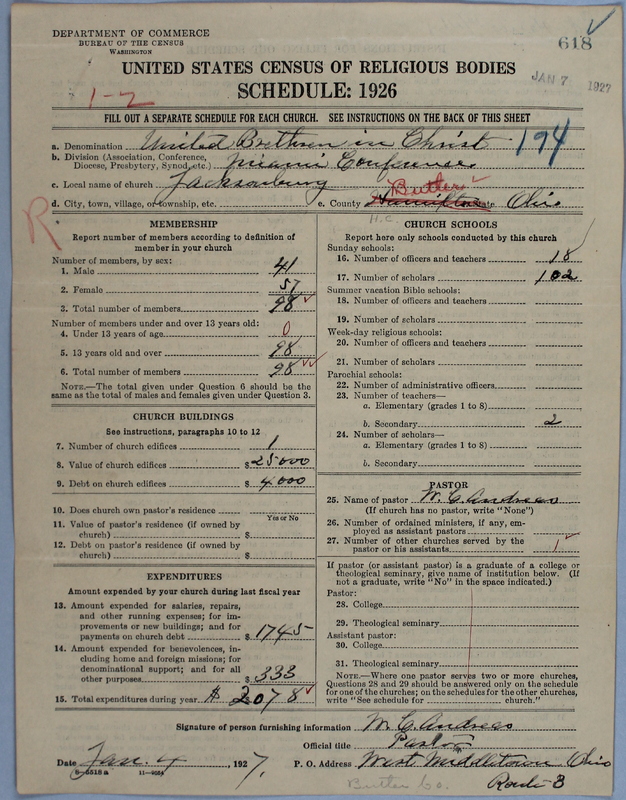 DEPARTMENT OF COMMERCE
BUREAU OF THE CENSUS
WASHINGTON
618
JAN 7 1927
UNITED STATES CENSUS OF RELIGIOUS BODIES
SCHEDULE: 1926
1-2
FILL OUT A SEPARATE SCHEDULE FOR EACH CHURCH. SEE INSTRUCTIONS ON THE BACK OF THIS SHEET
a. Denomination United Brethren in Christ 194
b. Division (Association, Conference, Diocese, Presbytery, Synod, etc.) Miami Conference
c. Local name of church Jacksonburg
d. City, town, village, or township, etc. e. County Hamilton Butler State Ohio
H.C.
R
MEMBERSHIP
Report number of members according to definition of
member in your church
Number of members, by sex:
1. Male 41
2. Female 57
3. Total number of members 98
Number of members under and over 13 years old:
4. Under 13 years of age 0
5. 13 years old and over 98
6. Total number of members 98
NOTE.—The total given under Question 6 should be
same as the total of males and females given under Question 3.
CHURCH BUILDINGS
See instructions, paragraphs 10 to 12
7. Number of church edifices 1
8. Value of church edifices $25000
9. Debt on church edifices $4000
10. Does church own pastor's residence?
Yes or No
11. Value of pastor's residence (if owned by
church) $
12. Debt on pastor's residence (if owned by
church) $
EXPENDITURES
Amount expended by your church during last fiscal year
13. Amount expended for salaries, repairs,
and other running expenses; for im-
provements or new buildings; and for
payments on church debt $1745
14. Amount expended for benevolences, in-
cluding home and foreign missions; for
denominational support; and for all
other purposes $333
15. Total expenditures during year $2078
CHURCH SCHOOLS
Report here only schools conducted by this church
Sunday schools:
16. Number of officers and teachers 18
17. Number of scholars 102
Summer vacation Bible schools:
18. Number of officers and teachers
19. Number of scholars
Week-day religious schools:
20. Number of officers and teachers
21. Number of scholars
Parochial schools:
22. Number of administrative officers
23. Number of teachers—
a. Elementary (grades 1 to 8)
b. Secondary 2
24. Number of scholars—
a. Elementary (grades 1 to 8)
b. Secondary
PASTOR
25. Name of pastor W. C. Andreas
(If church has no pastor, write "None")
26. Number of ordained ministers, if any, em-
ployed as assistant pastors
27. Number of other churches served by the
pastor or his assistants 1
If pastor (or assistant pastor) is a graduate of a college or
theological seminary, give name of institution below. (If
not a graduate, write "No" in the space indicated.)
Pastor:
28. College
29. Theological seminary
Assistant pastor:
30. College
31. Theological seminary
NOTE.—Where one pastor serves two or more churches,
Questions 28 and 29 should be answered only on the schedule
for one of the churches; on the schedules for the other churches,
write "See schedule for church."
Signature of person furnishing information W. C. Andreas
Official title Pastor
Date Jan. 4, 1927. P. O. Address West Middletown Ohio
8—5518a 11—9084
Butler Co. Route 3